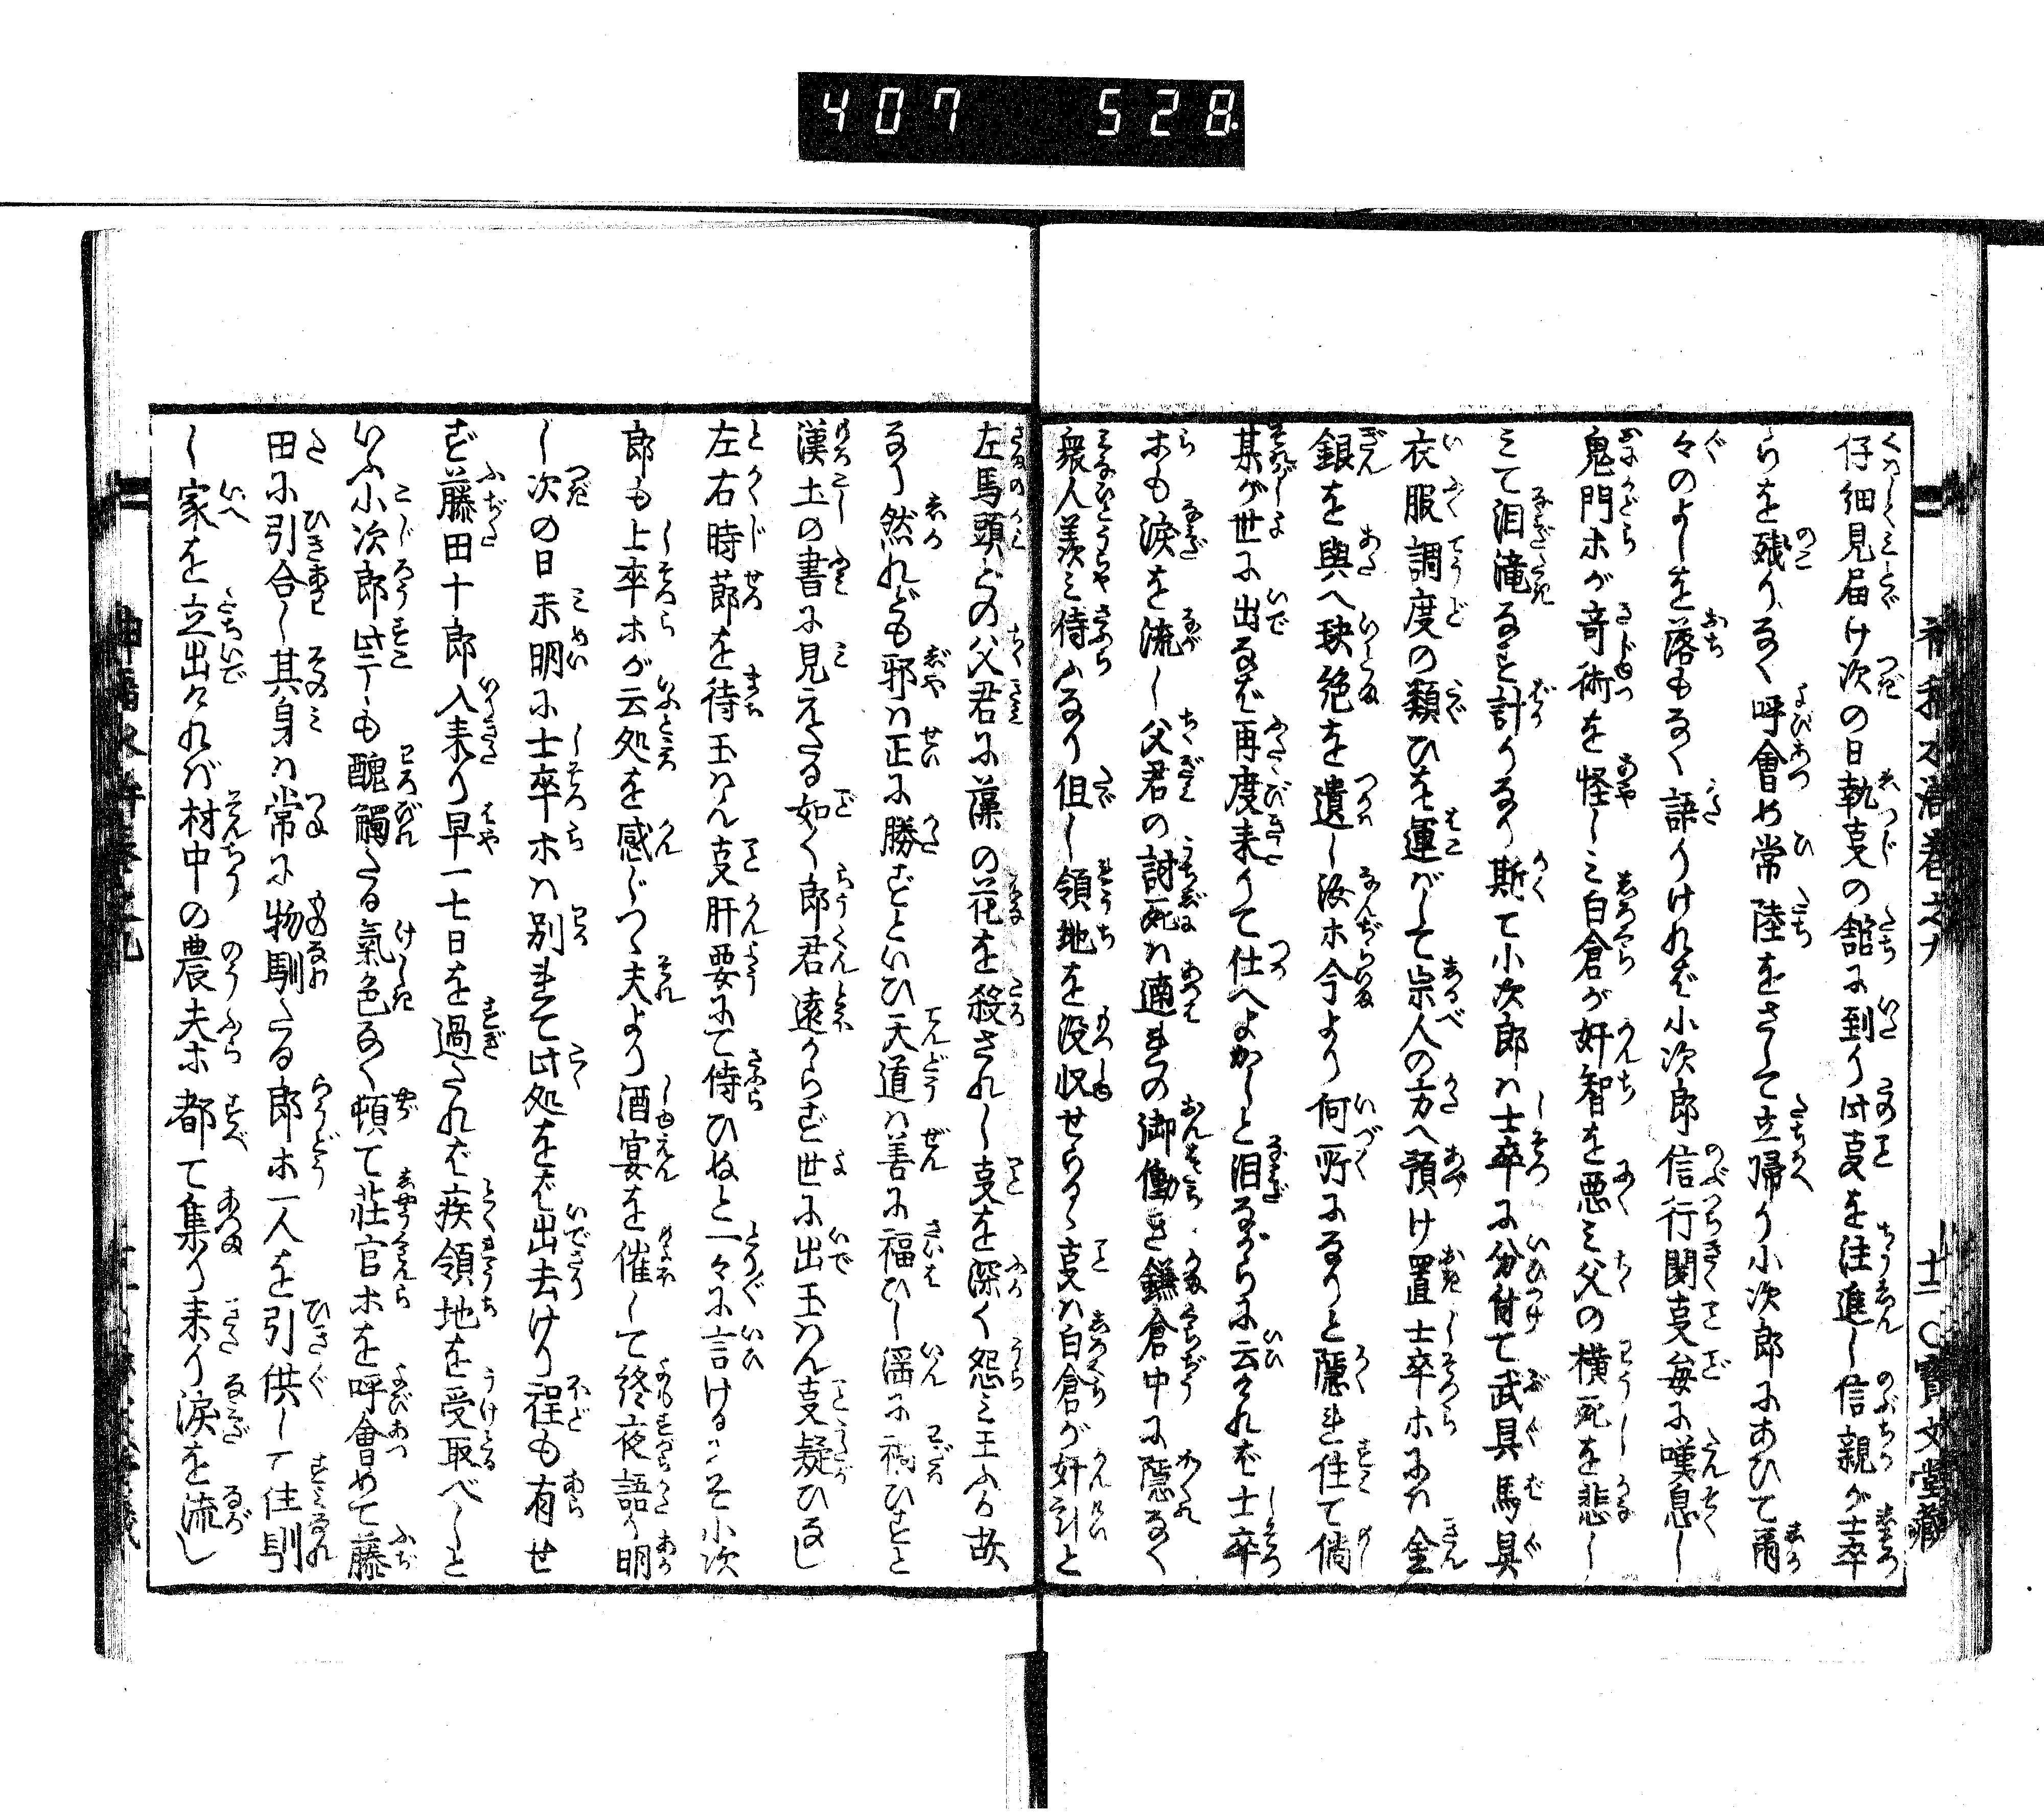 407 528
仔細見届け次の日執事の舘に到り此事を注進し信親が士卒
らを残りなく呼會め常陸をさして立帰り小次郎にあひて爾
々のよしを落もなく語りければ小次郎信行聞事毎に嘆息し
鬼門ホが奇術を怪しみ白倉が奸智を悪み父の横死を悲し
みて泪滝なす計りなり斯て小次郎は士卒に分付て武具馬具
衣服調度の類ひを運ばして宗人の方へ預け置士卒ホには金
銀を與へ秧絶を遺し汝ホ今より何所になりと隠れ住て倘
某が世に出なば再度来りて仕へよかしと泪ながらに云ければ士卒
ホも涙を流し父君の討死は遖れの御働き鎌倉中に隠なく
衆人羨み侍ふなり但し領地を没収せらるゝ事は白倉が奸計と
左馬頭どの父君に藻の花を殺されし事を深く怨み玉ふ故
なり然れども邪は正に勝ずといひ天道は善に福ひし淫に禍ひすと
漢土の書に見えたる如く郎君遠からず世に出玉はん事疑ひなし
左右時莭を待玉はん事肝要にて侍ひぬと一々に言けるにぞ小次
郎も士卒ホが云処を感じつゝ夫より酒宴を催して終夜語り明
し次の日未明に士卒ホは別れて此処をば出去けり程も有せ
ず藤田十郎入来り早一七日を過たれば疾領地を受取べしと
いふ小次郎些しも醜觸たる氣色なく頓て荘官ホを呼會めて藤
田に引合し其身は常に物馴たる郎ホ一人を引供して住馴
し家を立出ければ村中の農夫ホ都て集り来り涙を流し
十二 ○寳文堂藏